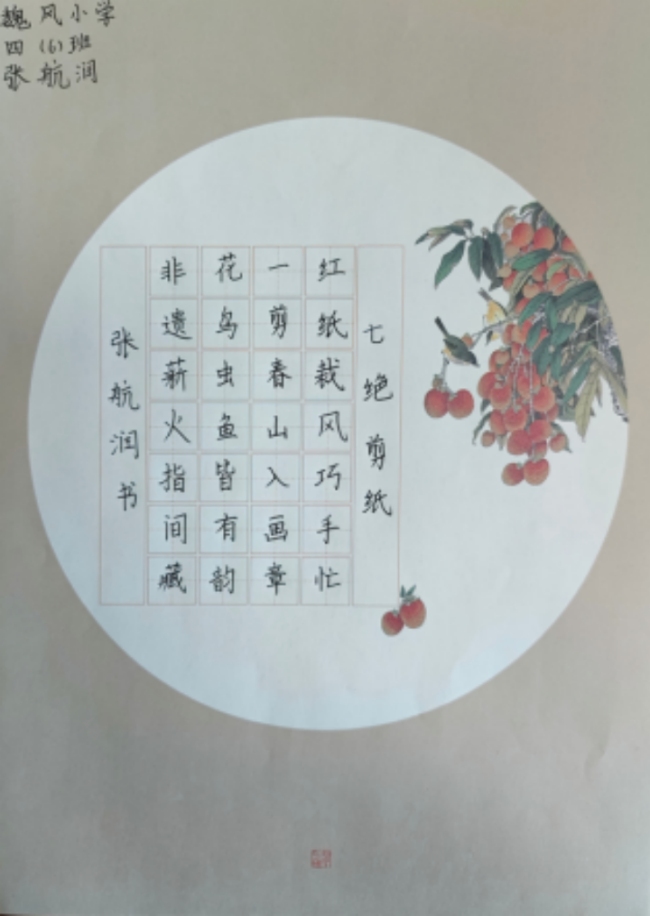 魏风小学
四(6)班
张航润
七绝 剪纸
红纸裁风巧手忙
一剪春山入画章
花鸟虫鱼皆有韵
非遗薪火指间藏
张航润书